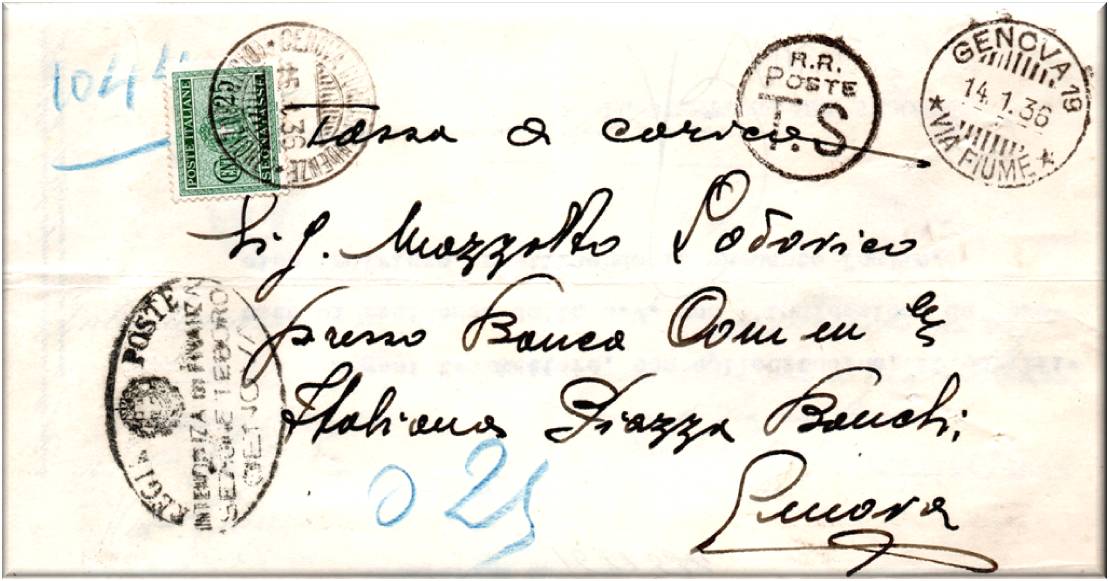 104
GENOVA
15 1.36
POSTE ITALIANE
SEGNATASSE
CENT. 25
R.R.
POSTE
T.S
GENOVA 19
14.1.36
* VIA FIUME *
Tassa a carico
Sig. Mazzetto Lodovico
presso Banca Comm le
Italiana Piazza Banchi,
Genova
REGIE POSTE
INTENDENZA DI FINANZA
SEZIONE TESORO
GENOVA
0 25